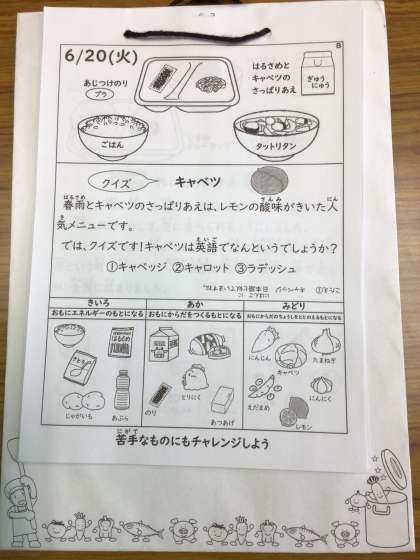 6/20(火)
B
あじつけのり
プラ
はるさめと
キャベツの
さっぱりあえ
ぎゅう
にゅう
ごはん
タットリタン
クイズ
キャベツ
春雨とキャベツのさっぱりあえは、レモンの酸味がきいた人
気メニューです。
では、クイズです！キャベツは英語でなんというでしょうか？
①キャベッジ ②キャロット ③ラデッシュ
こたえ：① キャベッジ
日本語と似ていますね。
きいろ
おもにエネルギーのもとになる
あか
おもにからだをつくるもとになる
みどり
おもにからだのちょうしをととのえるもとになる
はるさめ
さとう
じゃがいも
あぶら
のり
とりにく
あつあげ
にんじん
キャベツ
たまねぎ
えだまめ
にんにく
レモン
苦手なものにもチャレンジしよう